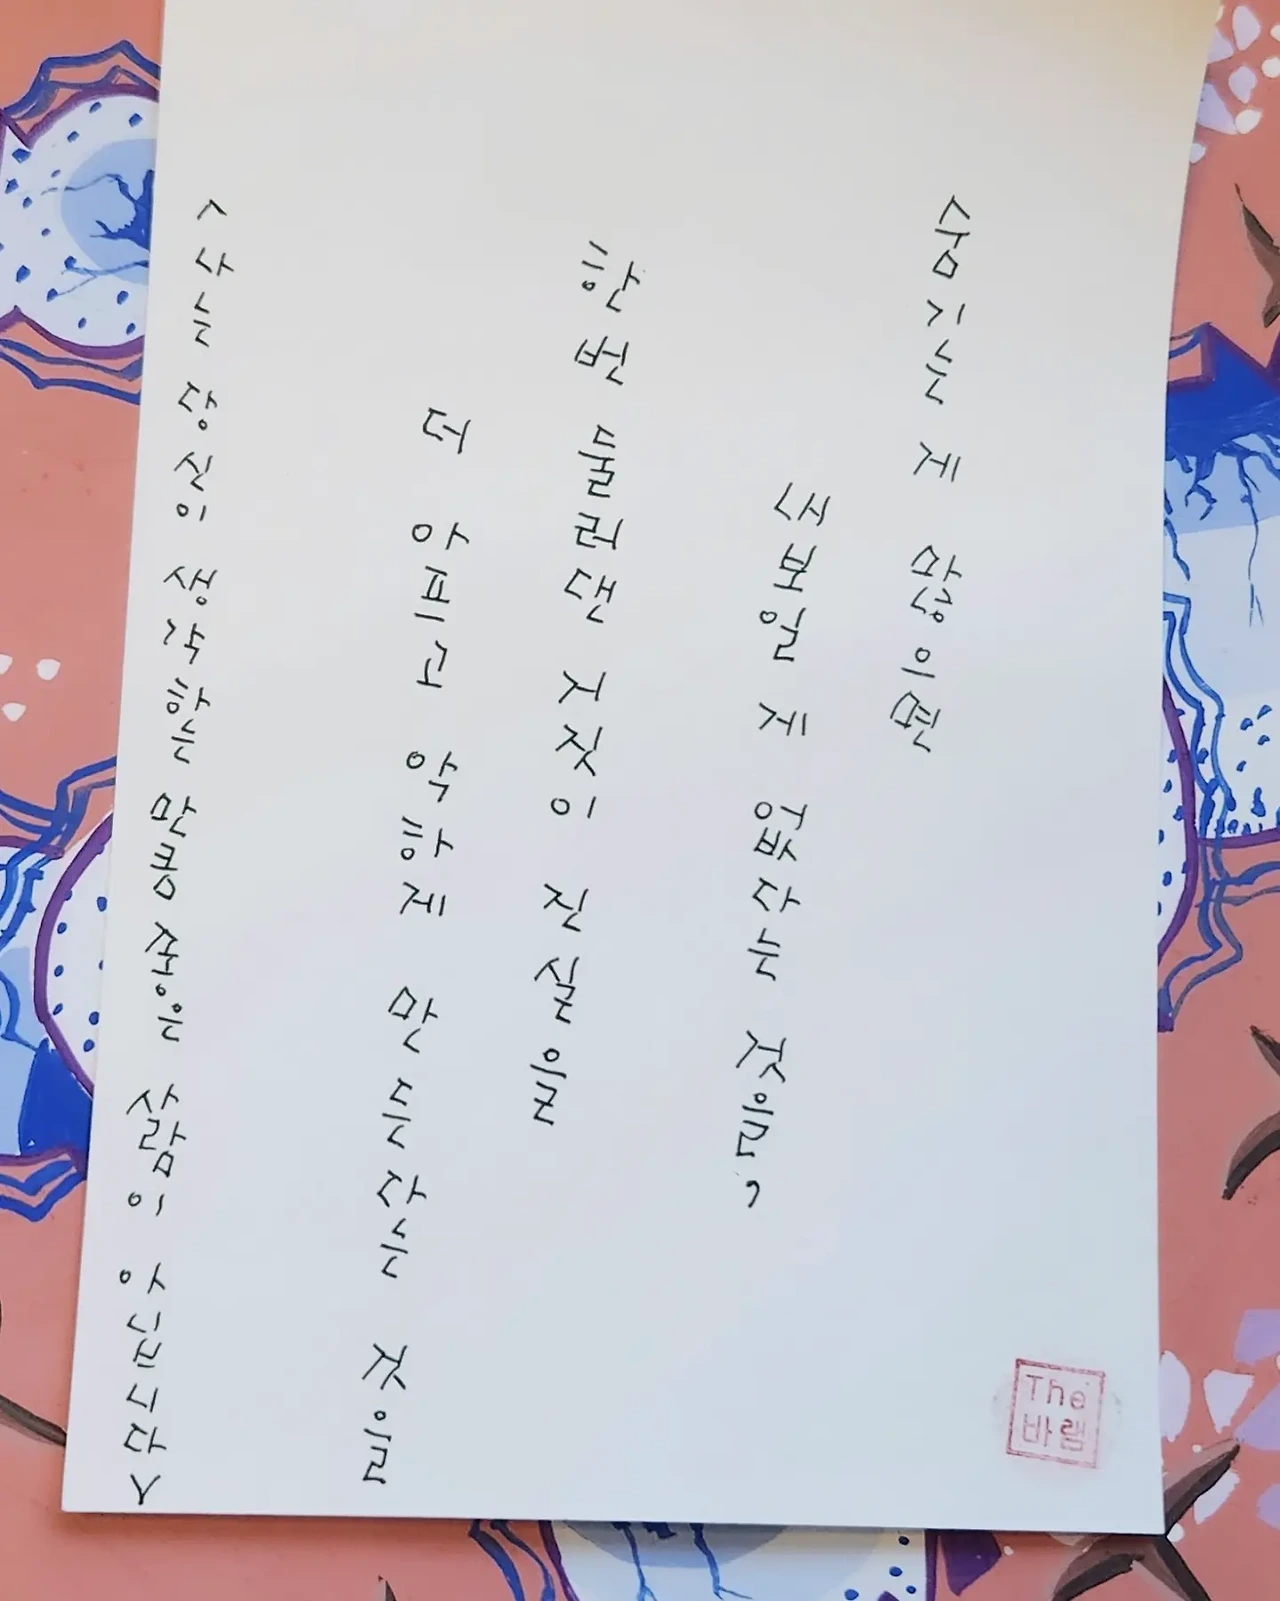 숨기는 게 많으면
내보일 게 없다는 것을,
한번 둘러댄 거짓이 진실을
더 아프고 악하게 만든다는 것을
<나는 당신이 생각하는 만큼 좋은 사람이 아닙니다>
The
바램